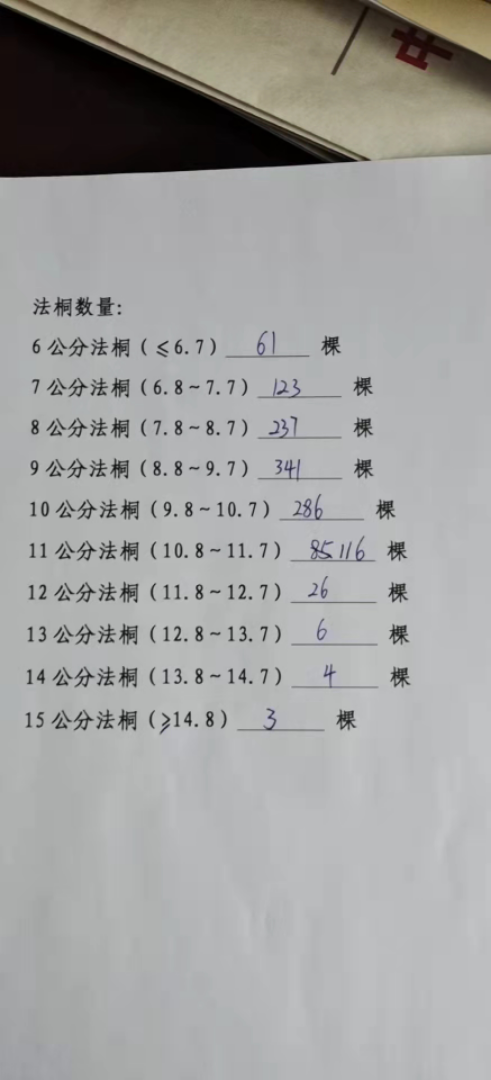 中
法桐数量:
6公分法桐(≤6.7) 61 棵
7公分法桐(6.8~7.7) 123 棵
8公分法桐(7.8~8.7) 237 棵
9公分法桐(8.8~9.7) 341 棵
10公分法桐(9.8~10.7) 286 棵
11公分法桐(10.8~11.7) 85 116 棵
12公分法桐(11.8~12.7) 26 棵
13公分法桐(12.8~13.7) 6 棵
14公分法桐(13.8~14.7) 4 棵
15公分法桐(≥14.8) 3 棵